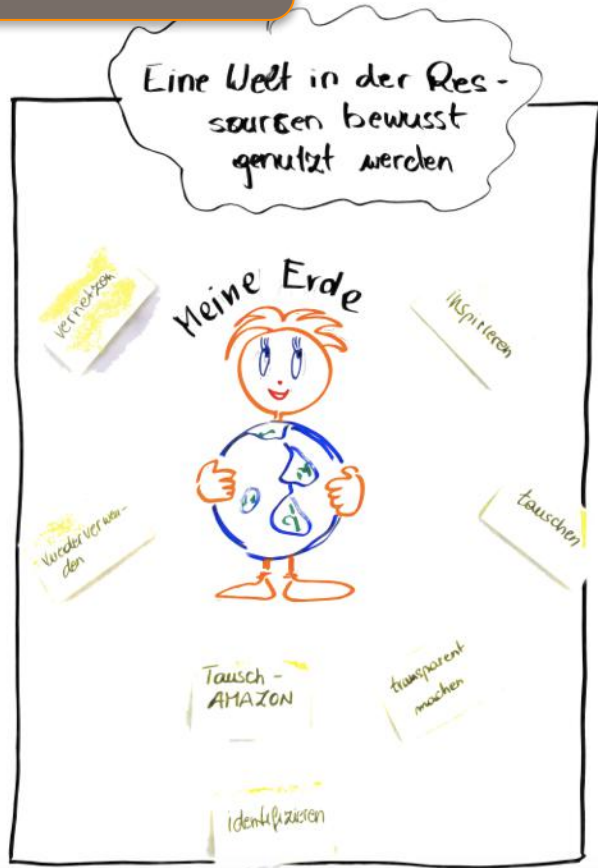 Eine Welt in der Res-
sourcen bewusst
genutzt werden
Meine Erde
vernetzen
inspirieren
wiederverwen-
den
tauschen
Tausch-
AMAZON
transparent
machen
identifizieren